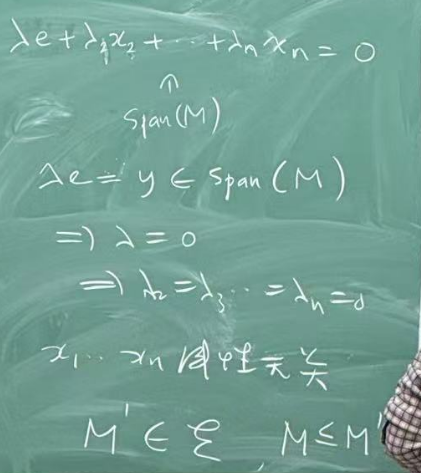 λe+λ₂x₂+⋯+λₙxₙ=0
∩
Span(M)
λe=y∈Span(M)
⇒λ=0
⇒λ₂=λ₃⋯=λₙ=0
x₁⋯xₙ线性无关
M'∈ξ M≤M'